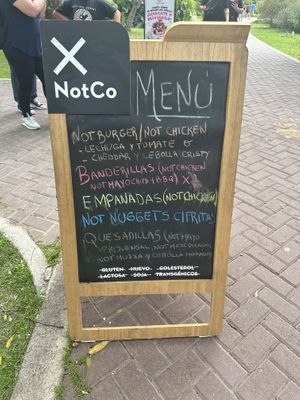 NotCo
MENÚ
NOTBURGER/NOT CHICKEN
- LECHUGA Y TOMATE Ó
- CHEDDAR Y CEBOLLA CRISPY
BANDERILLAS (NOTCHICKEN
NOTMAYO CHIPS + BBQ) X
EMPANADAS (NOTCHICKEN)
NOT NUGGETS C/FRITAS
QUESADILLAS (NOTMAYO
PROVENSAL, NOT
NOT Y CEBOLLA MORADA)
GLUTEN HUEVO COLESTEROL
LACTOSA SOJA TRANSGÉNICOS